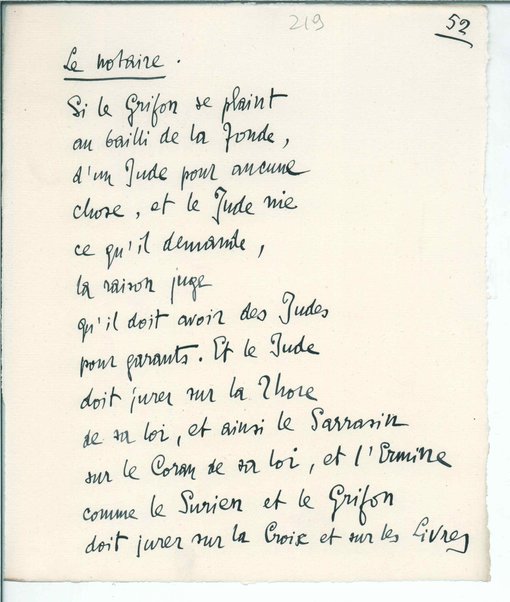 219
52
Le notaire.
Si le Grifon se plaint
au bailli de la Fonde,
d'un Jude pour aucune
chose, et le Jude nie
ce qu'il demande,
la raison juge
qu'il doit avoir des Judes
pour garants. Et le Jude
doit jurer sur la Thore
de sa loi, et ainsi le Sarrasin
sur le Coran de sa loi, et l'Ermine
comme le Surien et le Grifon
doit jurer sur la Croix et sur les Livres